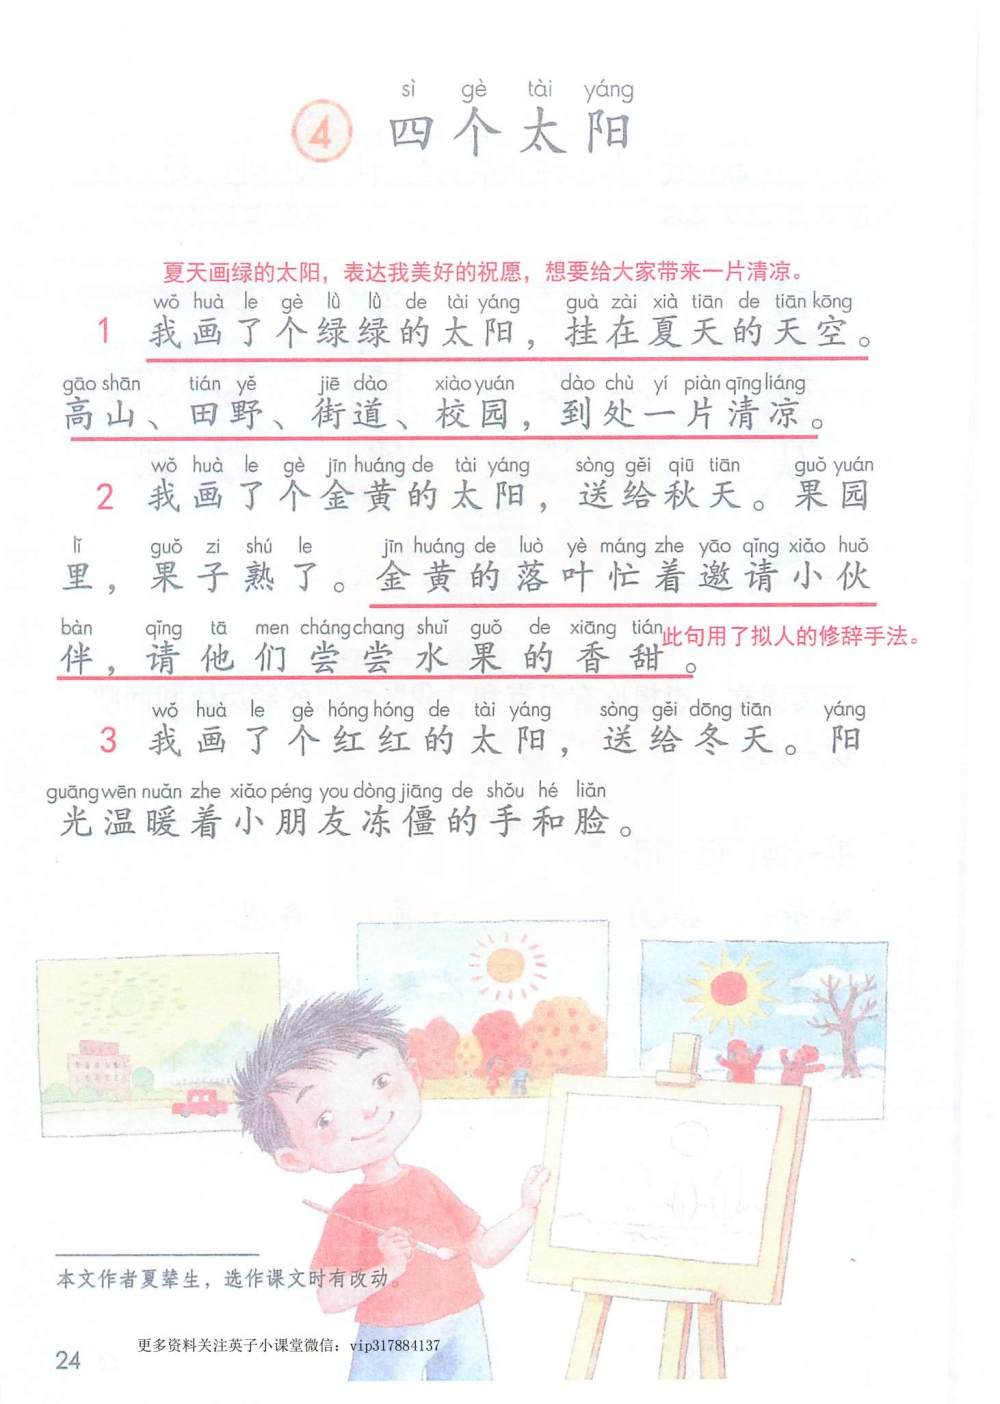 sì gè tài yáng
4 四个太阳
夏天画绿的太阳，表达我美好的祝愿，想要给大家带来一片清凉。
wǒ huà le gè lǜ lǜ de tài yáng guà zài xià tiān de tiān kōng
1 我画了个绿绿的太阳，挂在夏天的天空。
gāo shān tián yě jiē dào xiào yuán dào chù yí piàn qīng liáng
高山、田野、街道、校园，到处一片清凉。
wǒ huà le gè jīn huáng de tài yáng sòng gěi qiū tiān guǒ yuán
2 我画了个金黄的太阳，送给秋天。果园
lǐ guǒ zi shú le jīn huáng de luò yè máng zhe yāo qǐng xiǎo huǒ
里，果子熟了。金黄的落叶忙着邀请小伙
bàn qǐng tā men cháng chang shuǐ guǒ de xiāng tián
伴，请他们尝尝水果的香甜。此句用了拟人的修辞手法。
wǒ huà le gè hóng hóng de tài yáng sòng gěi dōng tiān yáng
3 我画了个红红的太阳，送给冬天。阳
guāng wēn nuǎn zhe xiǎo péng you dòng jiāng de shǒu hé liǎn
光温暖着小朋友冻僵的手和脸。
本文作者夏辇生，选作课文时有改动。
更多资料关注英子小课堂微信：vip317884137
24